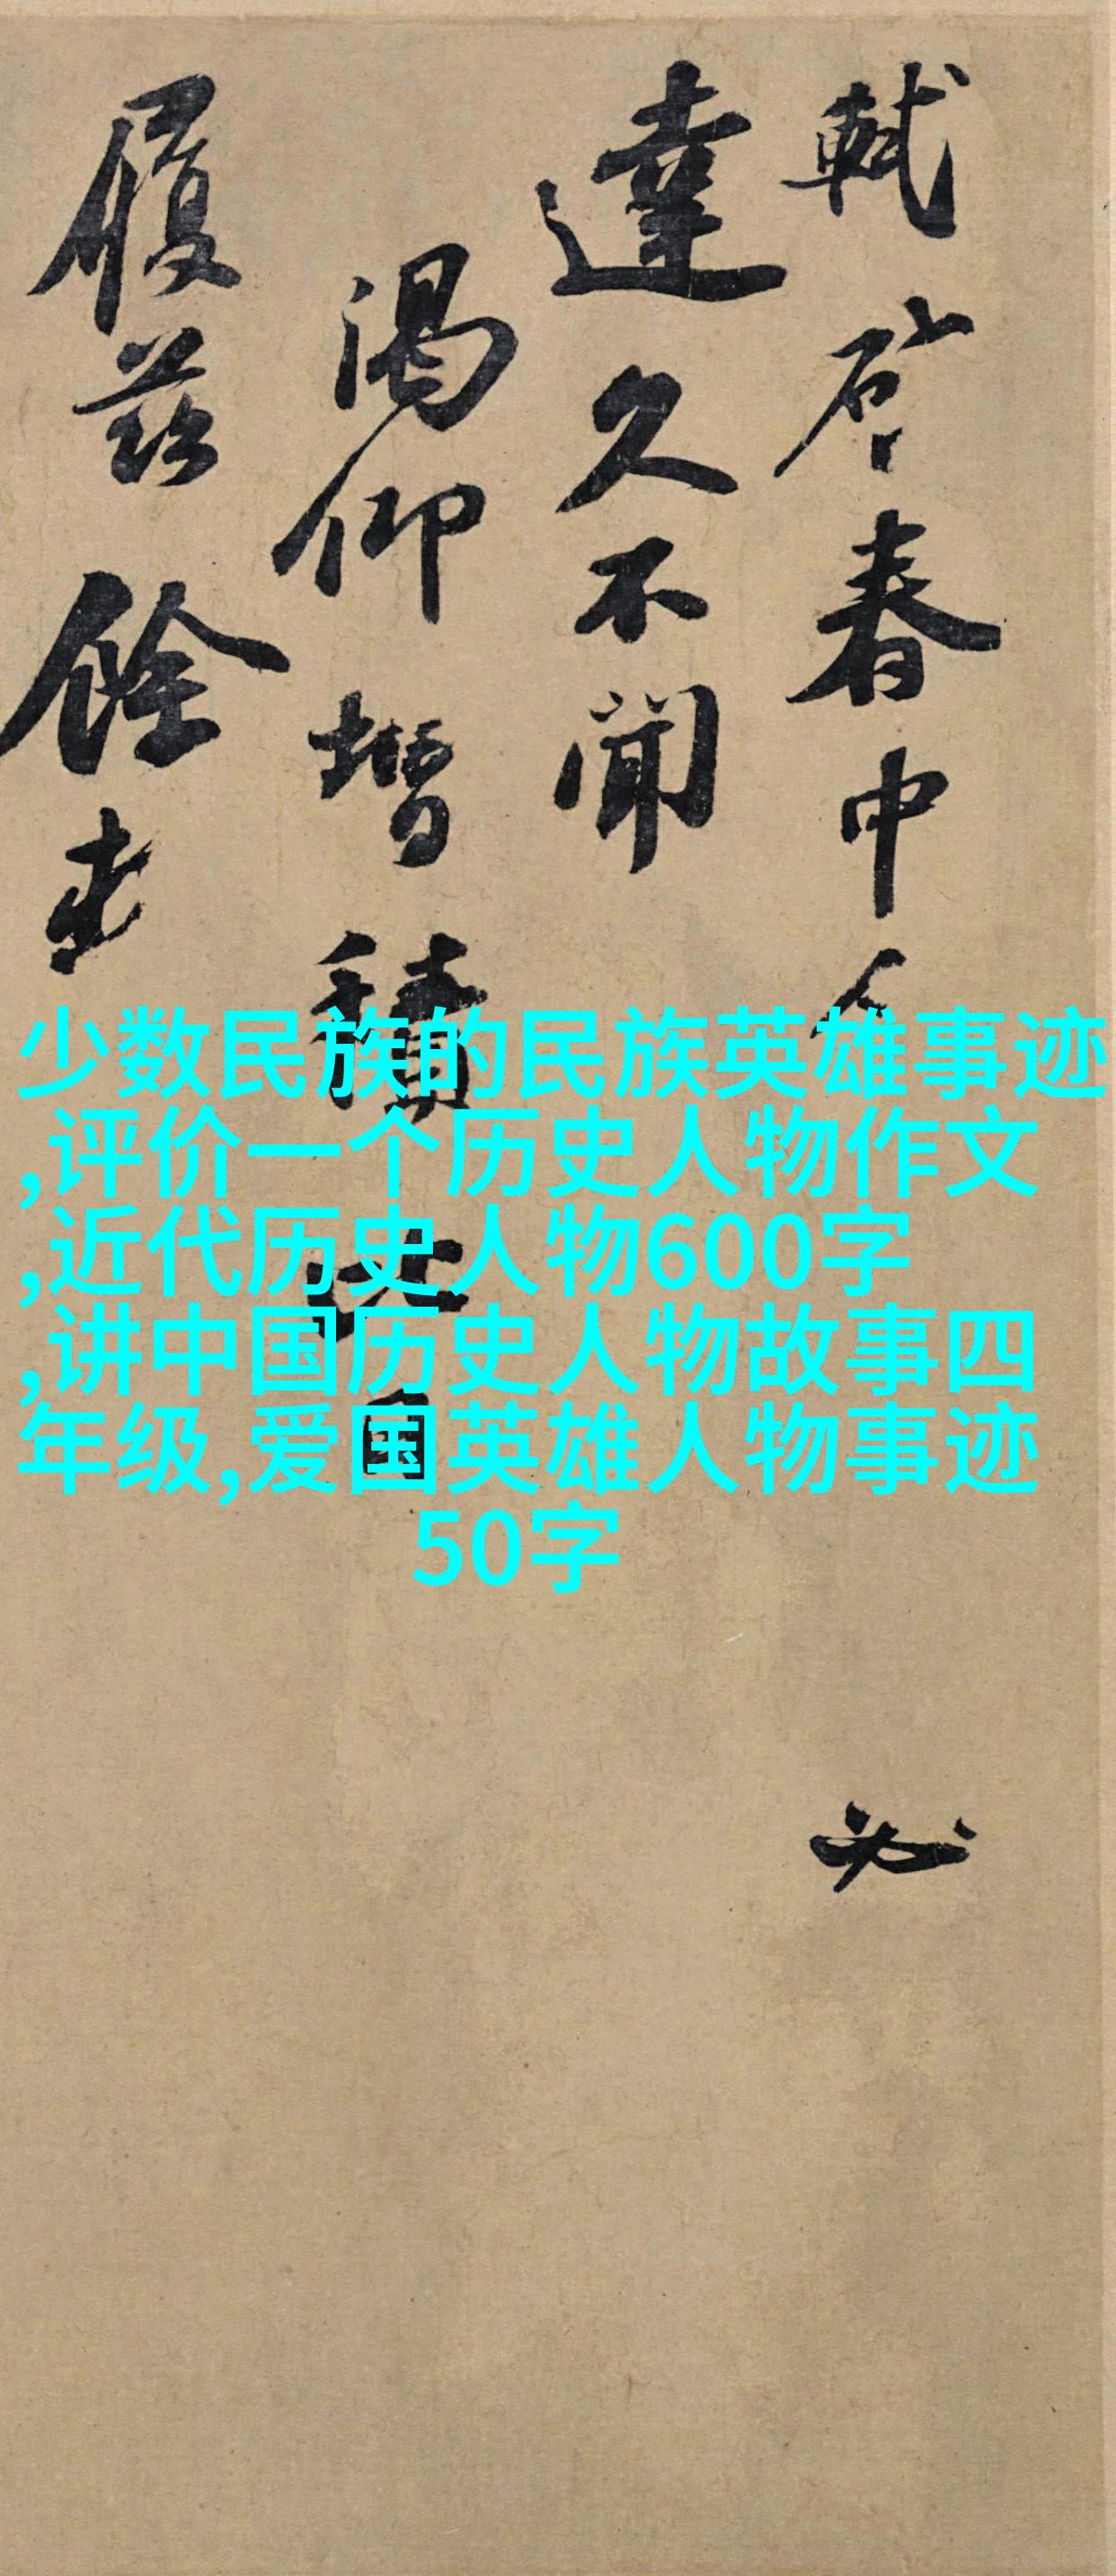 軾啓春中人
必
達久不聞
渴仰增積比日
履茲餘
少数民族的民族英雄事迹
,评价一个历史人物作文
,近代历史人物600字
,讲中国历史人物故事四
年级,爱国英雄人物事迹
50字